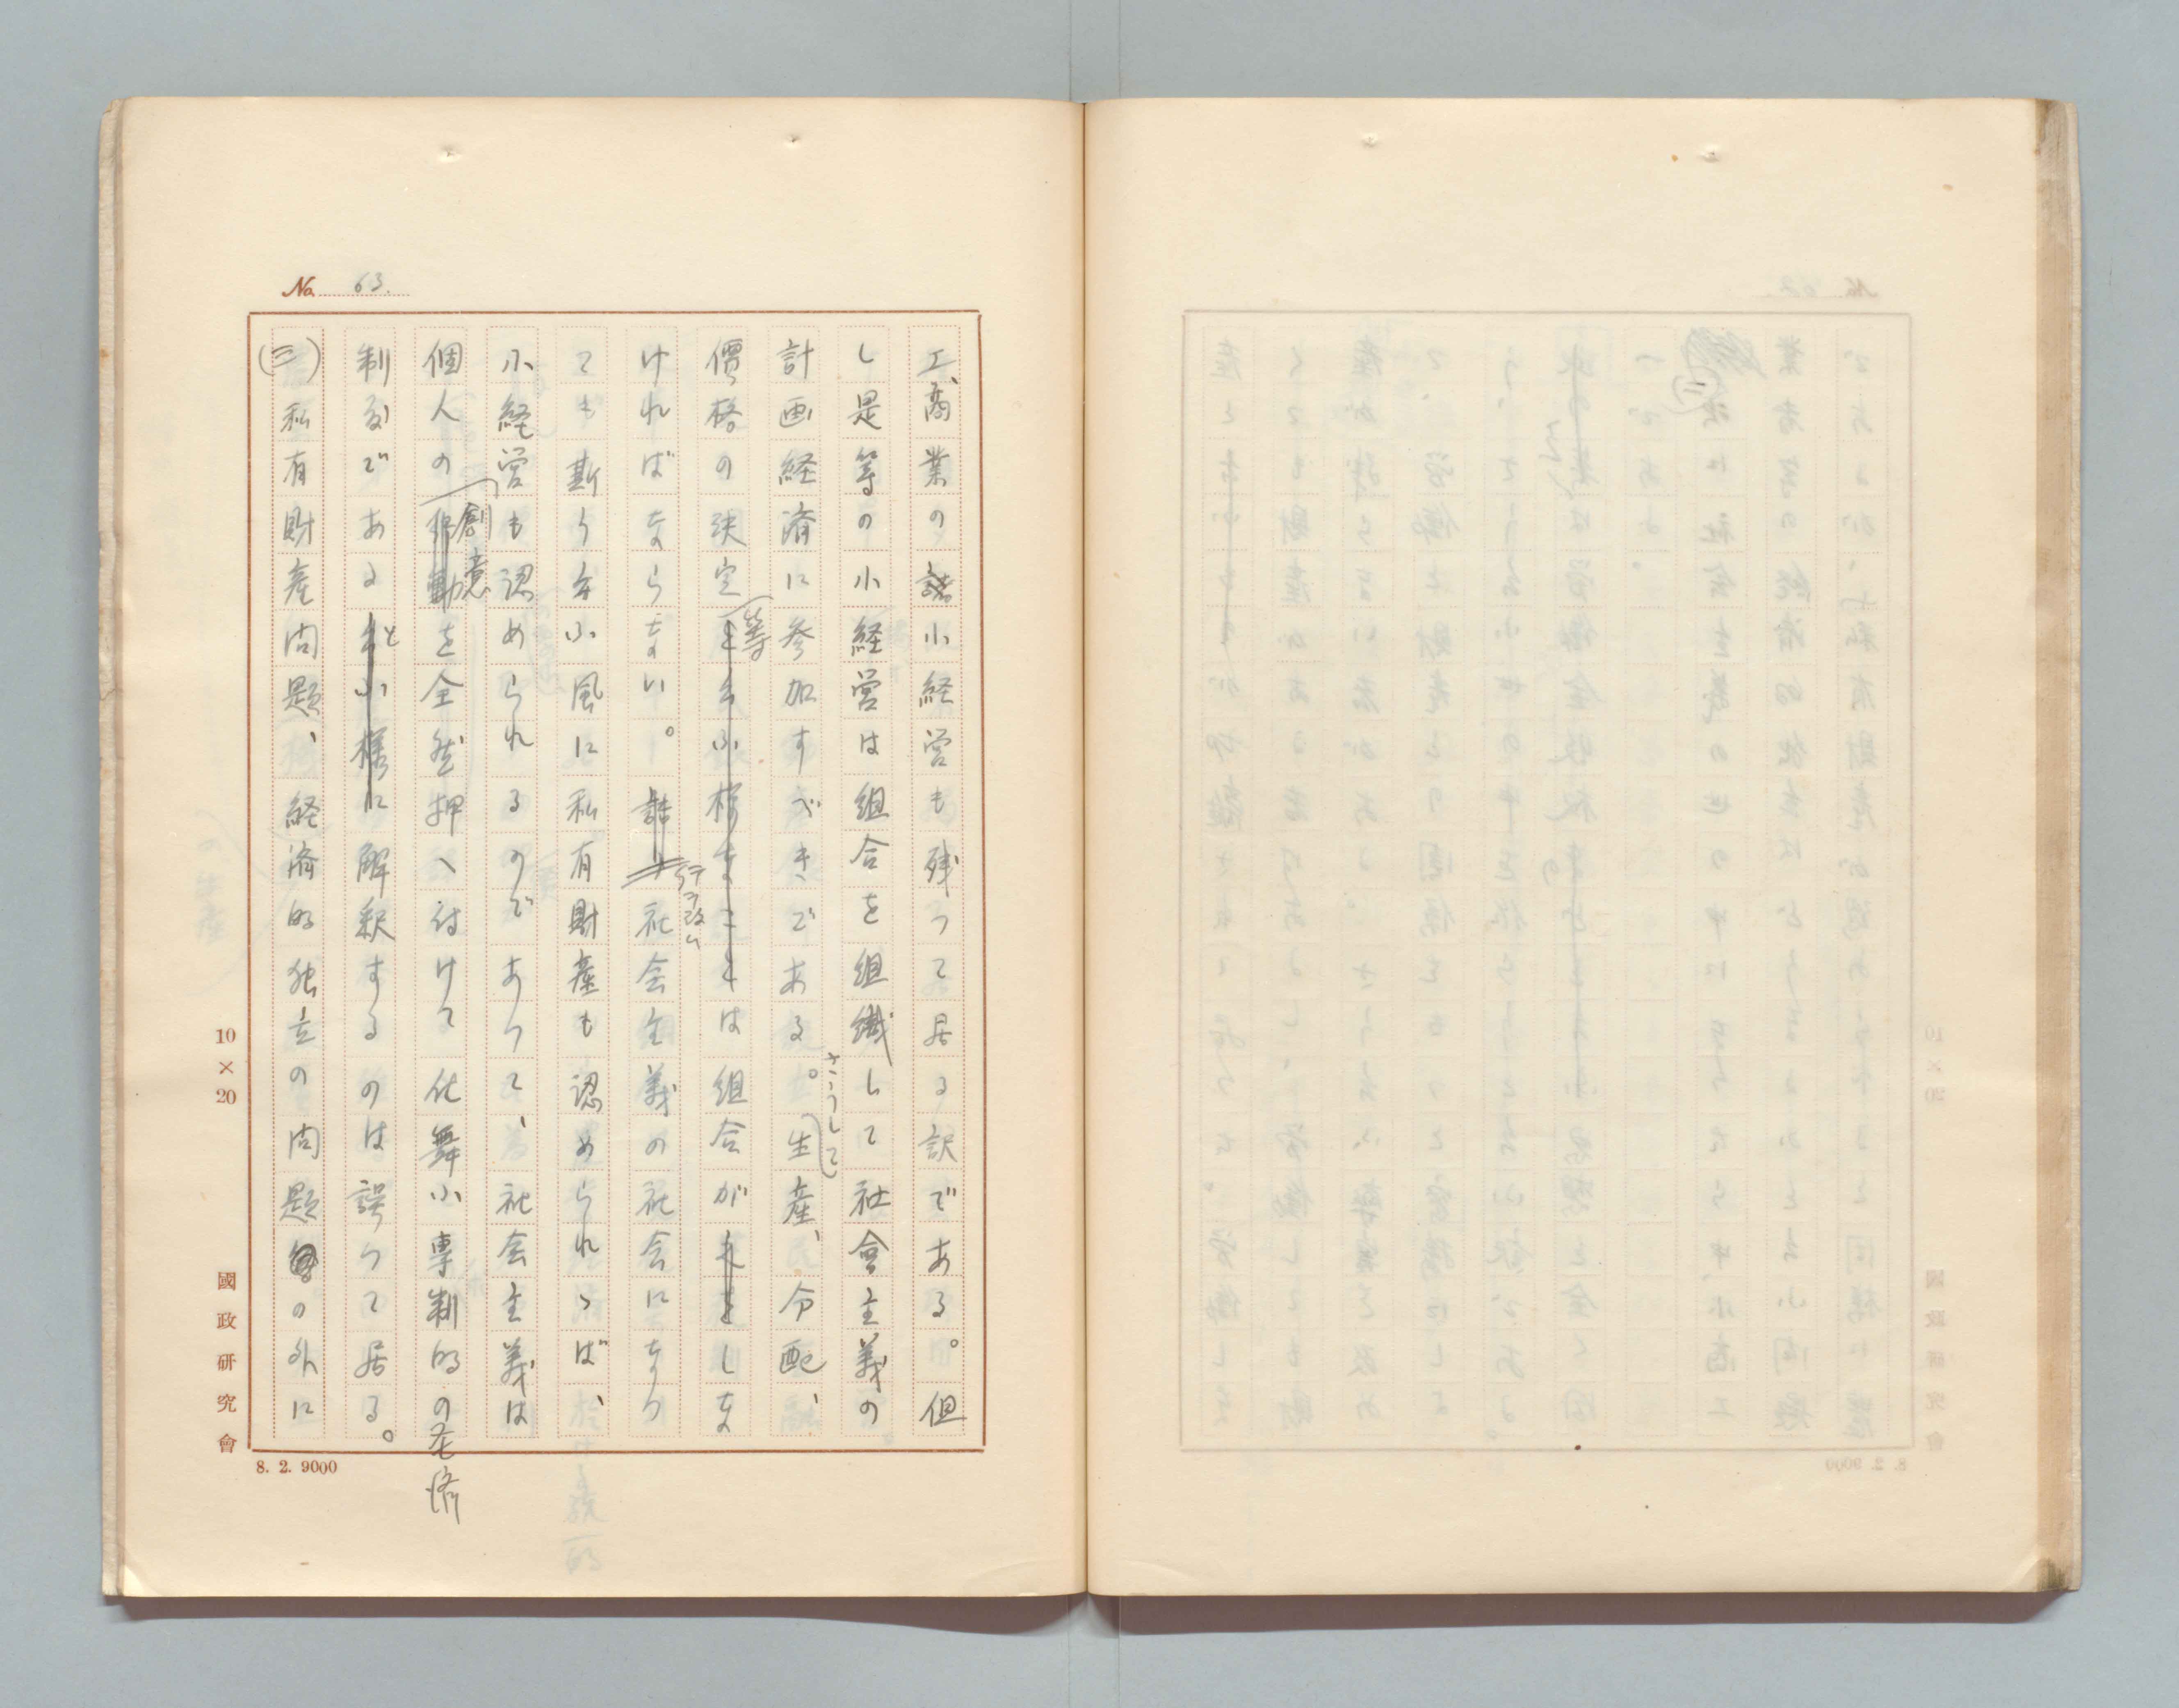 No. 63.
工、商業の諸小経営も残って居る訳である。但
し是等の小経営は組合を組織して社會主義の
計画経済に参加すべきである。さうして生産、分配、
價格の決定等は組合がしな
ければならない。行ヲ改ム社会主義の社会になつ
ても斯う云ふ風に私有財産も認められゝば、
小経営も認められるのであつて、社会主義は
個人の創意を全然押へ付けて仕舞ふ専制的の经济
制度であると解釈するのは誤つて居る。
(三)私有財産問題、経済的独立の問題の外に
10×20
國政研究會
8. 2. 9000